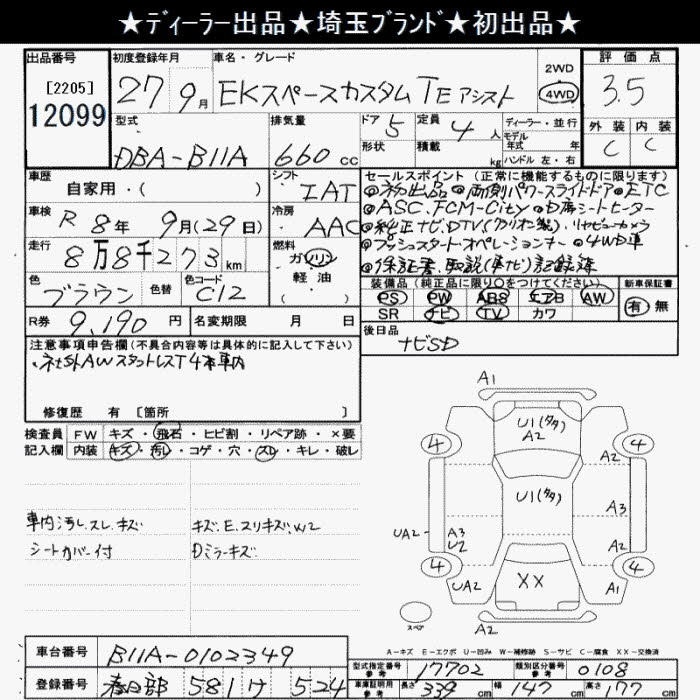 ★ディーラー出品★埼玉ブランド★初出品★
出品番号
[2205]
12099
初度登録年月
27年9月
車名・グレード
EKスペースカスタム TEアシスト
2WD
4WD
評価点
3.5
外装 内装
C C
型式
DBA-B11A
排気量
660 cc
ドア 5
形状
定員 4 人
積載 kg
ディーラー・並行
モデル年式 年
ハンドル 左・右
車歴
自家用・( )
シフト
IAT
セールスポイント (正常に機能するものに限ります)
◎初出品◎両側パワースライドドア◎ETC
◎ASC.FCM-City◎D席シートヒーター
◎純正ナビ.DTV(クラリオン製).リヤビューカメラ
◎プッシュスタート.オペレーションキー ◎4WD車
◎保証書.取説(車ナビ)記録簿
車検
R 8年 9月(29日)
冷房
AAC
走行
8万8千273km
燃料
ガソリン
軽油
( )
色
ブラウン
色替
色コード
C12
装備品 (純正品に限り○をつけてください)
PS PW ABS エアB AW
SR ナビ TV カワ
新車保証書
有 無
R券 9,190 円
名変期限 月 日
後日品
ナビSD
注意事項申告欄 (不具合内容等は具体的に記入して下さい)
・社外AWスタットレスT4本車内
修復歴 有 [箇所 ]
検査員 FW キズ・飛石・ヒビ割・リペア跡・×要
記入欄 内装 キズ・汚れ・コゲ・穴・スレ・キレ・破レ
車内汚レ.スレ.キズ
シートカバー付
キズ.E.スリキズ.W2
Dミラーキズ
A1
U1(タタ)
A2
4
4
A2
U1(タタ)
A3
UA2
A3
U2
A2
4
4
UA2
XX
A1
スペア
A2
A−キズ E−エクボ U−凹み W−補修跡 S−サビ C−腐食 XX−交換済
車台番号
B11A-0102349
型式指定番号 参考
17702
類別区分番号 参考
0108
登録番号
春日部 581 け 524
車庫証明用 参考
長さ 339 cm
幅 147 cm
高さ 177 cm